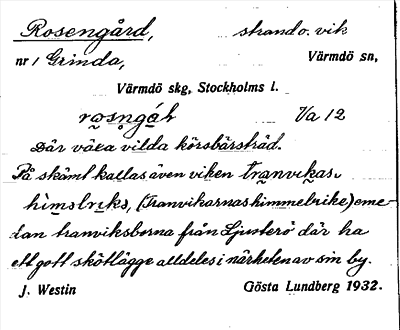 Rosengård, strand o. vik
nr 1 Grinda, Värmdö sn,
Värmdö skg, Stockholms l.
rosngáh Va 12
Där växa vilda körsbärsträd.
På skämt kallas även viken tranvikas
himslriks, (Tranvikarnas himmelrike) eme-
dan tranviksborna från Ljusterö där ha
ett gott skötlägge alldeles i närheten av sin by.
J. Westin Gösta Lundberg 1932.